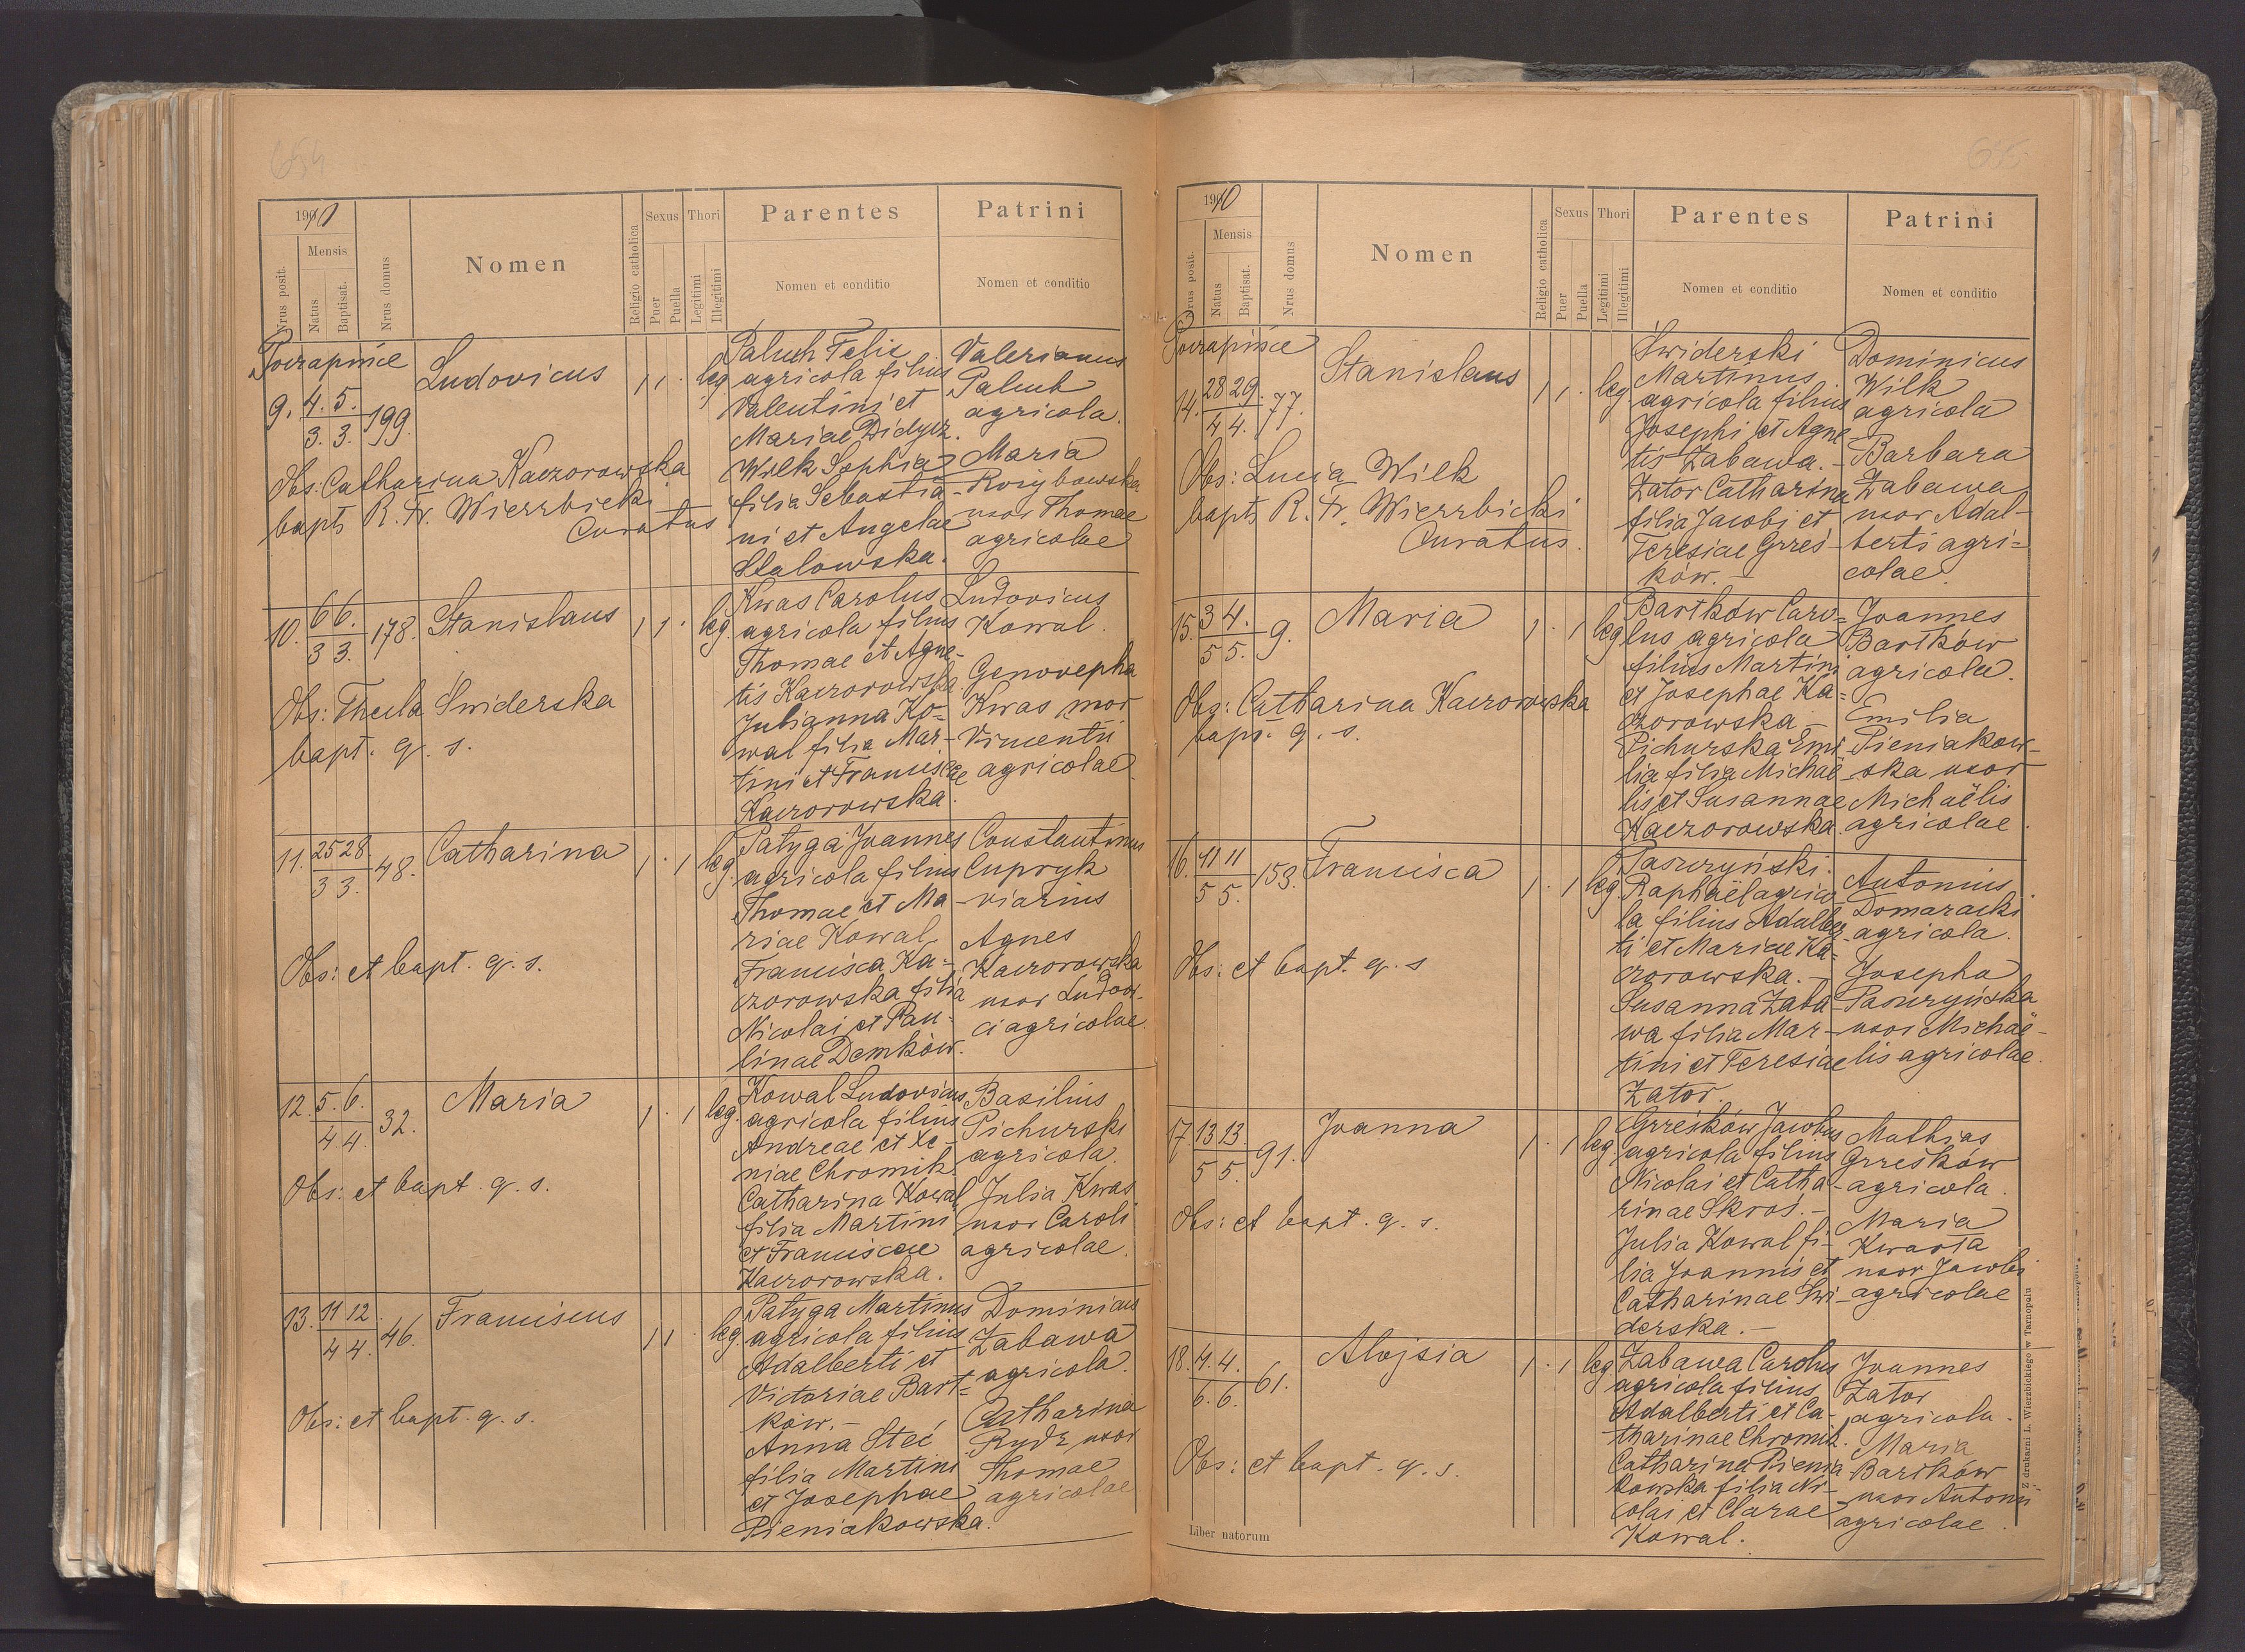 654
1910
Nrus posit.
Mensis
Natus
Baptisat.
Nrus domus
Nomen
Religio catholica
Sexus
Puer
Puella
Thori
Legitimi
Illegitimi
Parentes
Nomen et conditio
Patrini
Nomen et conditio
9. 4. 5. 3. 3. 199. Ludovicus 1 1 . leg.
Obs: Catharina Kaczorowska
bapt. R. Fr. Wierzbicki
Curatus
Paluch Felix
agricola filius
Valentini et
Mariae Didycz.
Wilk Sophia
filia Sebastia-
ni et Angelae
Stalowska.
Valerianus
Paluch
agricola.
Maria
uxor Thomae
agricolae
10. 6 6. 3 3. 178. Stanislaus 1 1 . leg.
Obs: Thecla Świderska
bapt. q. s.
Kwas Carolus
agricola filius
Thomae et Agne-
tis Kaczorowska
Julianna Ko-
wal filia Mar-
tini et Franciscae
Kaczorowska.
Ludovicus
Kowal.
Genovepha
Kwas uxor
Vincentii
agricolae
11. 25 28. 3 3. 48. Catharina 1 . 1 leg.
Obs: et bapt. q. s.
Patyga Joannes
agricola filius
Thomae et Ma-
riae Kowal
Francisca Ka-
czorowska filia
Nicolai et Pau-
linae Demków.
Constantinus
Cupryk
viarius
Agnes
Kaczorowska
uxor Ludovi-
ci agricolae
12. 5. 6. 4. 4. 32. Maria 1 . 1 leg.
Obs: et bapt. q. s.
Kowal Ludovicus
agricola filius
Andreae et Xe-
niae Chromik
Catharina Kowal
filia Martini
et Franciscae
Kaczorowska.
Basilius
Pichurski
agricola.
Julia Kwas
uxor Caroli
agricolae.
13. 11 12. 4 4. 46. Franciscus 1 1 . leg.
Obs: et bapt. q. s.
Patyga Martinus
agricola filius
Adalberti et
Victoriae Bart-
ków.-
Anna Steć
filia Martini
et Josephae
Pieniakowska.
Dominicus
Zabawa
agricola.
Catharina
Rydz uxor
Thomae
agricolae
1910
Nrus posit.
Mensis
Natus
Baptisat.
Nrus domus
Nomen
Religio catholica
Sexus
Puer
Puella
Thori
Legitimi
Illegitimi
Parentes
Nomen et conditio
Patrini
Nomen et conditio
14. 28 29. 4 4. 77. Stanislaus 1 1 . leg.
Obs: Lucia Wilk
bapt. R. Fr. Wierzbicki
Curatus.
Świderski
Martinus
agricola filius
Josephi et Agne-
tis Zabawa.-
Zator Catharina
filia Jacobi et
Teresiae Grześ-
ków.-
Dominicus
Wilk
agricola
Barbara
Zabawa
uxor Adal-
berti agri-
colae.
15. 3 4. 5 5. 9. Maria 1 . 1 leg
Obs: Catharina Kaczorowska
bapt. q. s.
Bartków Caro-
lus agricola
filius Martini
et Josephae Ka-
czorowska-
Pichurska Emi-
lia filia Michaë-
lis et Susannae
Kaczorowska.
Joannes
Bartków
agricola.
Emilia
Pieniakow-
ska uxor
Michaëlis
agricolae.
16. 11 11 5 5. 153. Francisca 1 . 1 leg.
Obs: et bapt. q. s
Pasuryński
Raphaël agrico-
la filius Adalber-
ti et Mariae Ka-
czorowska.-
Susanna Zaba-
wa filia Mar-
tini et Teresiae
Zator.
Antonius
Domaracki
agricola.
Josepha
Pasuryńska
uxor Michaë-
lis agricolae.
17. 13 13. 5 5. 91. Joanna 1 . 1 leg.
Obs: et bapt. q. s.
Grześków Jacobus
agricola filius
Nicolai et Catha-
rinae Skroś.-
Julia Kowal fi-
lia Joannis et
Catharinae Świ-
derska.-
Mathias
Grześków
agricola.
Maria
Kwarta
uxor Jacobi
agricolae
18. 4. 4. 6. 6. 61. Alojsia 1 . 1 leg
Obs: et bapt. q. s.
Zabawa Carolus
agricola filius
Adalberti et Ca-
tharinae Chromik.
Catharina Pienia-
kowska filia Ni-
colai et Clarae
Kowal.
Joannes
Zator
agricola.
Maria
Bartków
uxor Antonii
agricolae.
Liber natorum
Z drukarni L. Wierzbickiego w Tarnopolu